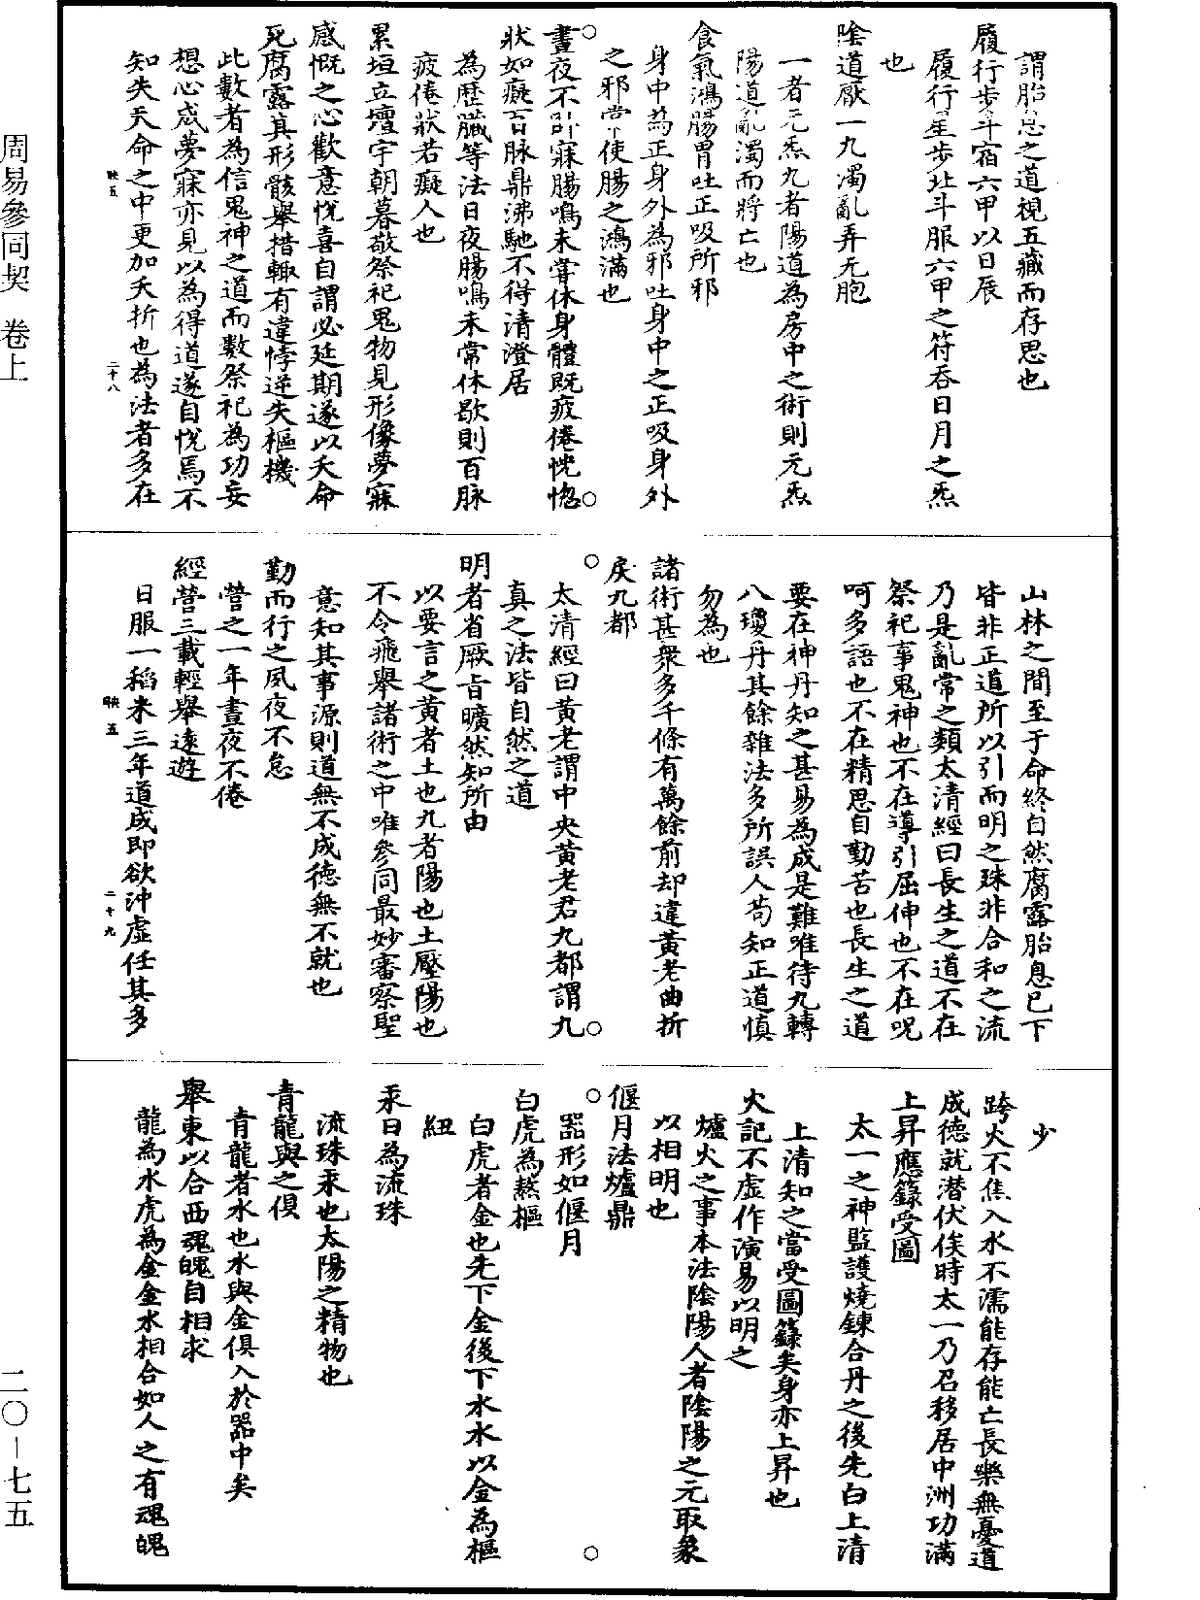 周易參同契　卷上
二〇－七五
謂胎息之道視五藏而存思也
履行步斗宿六甲以日辰
履行星步北斗服六甲之符吞日月之炁
也
陰道厭一九濁亂弄元胞
一者元炁九者陽道為房中之術則元炁
陽道亂濁而將亡也
食氣鴻腸胃吐正吸所邪
身中為正身外為邪吐身中之正吸身外
之邪常使腸之鴻滿也
晝夜不卧寐腸鳴未甞休身體既疲倦恍惚
狀如癡百脉鼎沸馳不得清澄居
為歷臟等法日夜腸鳴未常休歇則百脉
疲倦狀若癡人也
累垣立壇宇朝暮敬祭祀鬼物見形像夢寐
感慨之心歡意悅喜自謂必延期遂以夭命
死腐露其形骸舉措輙有違悖逆失樞機
此數者為信鬼神之道而數祭祀為功妄
想心成夢寐亦見以為得道遂自悅焉不
知失天命之中更加夭折也為法者多在
映五　二十八
山林之間至于命終自然腐露胎息已下
皆非正道所以引而明之殊非合和之流
乃是亂常之類太清經曰長生之道不在
祭祀事鬼神也不在導引屈伸也不在呪
呵多語也不在精思自勤苦也長生之道
要在神丹知之甚易為成是難唯待九轉
八瓊丹其餘雜法多所誤人苟知正道慎
勿為也
諸術甚衆多千條有萬餘前却違黃老曲折
戾九都
太清經曰黃老謂中央黃老君九都謂九
真之法皆自然之道
明者省厥旨曠然知所由
以要言之黃者土也九者陽也土壓陽也
不令飛舉諸術之中唯參同最妙審察聖
意知其事源則道無不成德無不就也
勤而行之夙夜不怠
營之一年晝夜不倦
經營三載輕舉遠遊
日服一稻米三年道成即欲沖虛任其多
映五　二十九
少
跨火不焦入水不濡能存能亡長樂無憂道
成德就潜伏俟時太一乃召移居中洲功滿
上昇應籙受圖
太一之神監護燒鍊合丹之後先白上清
上清知之當受圖籙矣身亦上昇也
火記不虛作演易以明之
爐火之事本法陰陽人者陰陽之元取象
以相明也
偃月法爐鼎
器形如偃月
白虎為熬樞
白虎者金也先下金後下水水以金為樞
紐
汞日為流珠
流珠汞也太陽之精物也
青龍與之俱
青龍者水也水與金俱入於器中矣
舉東以合西魂魄自相求
龍為水虎為金金水相合如人之有魂魄